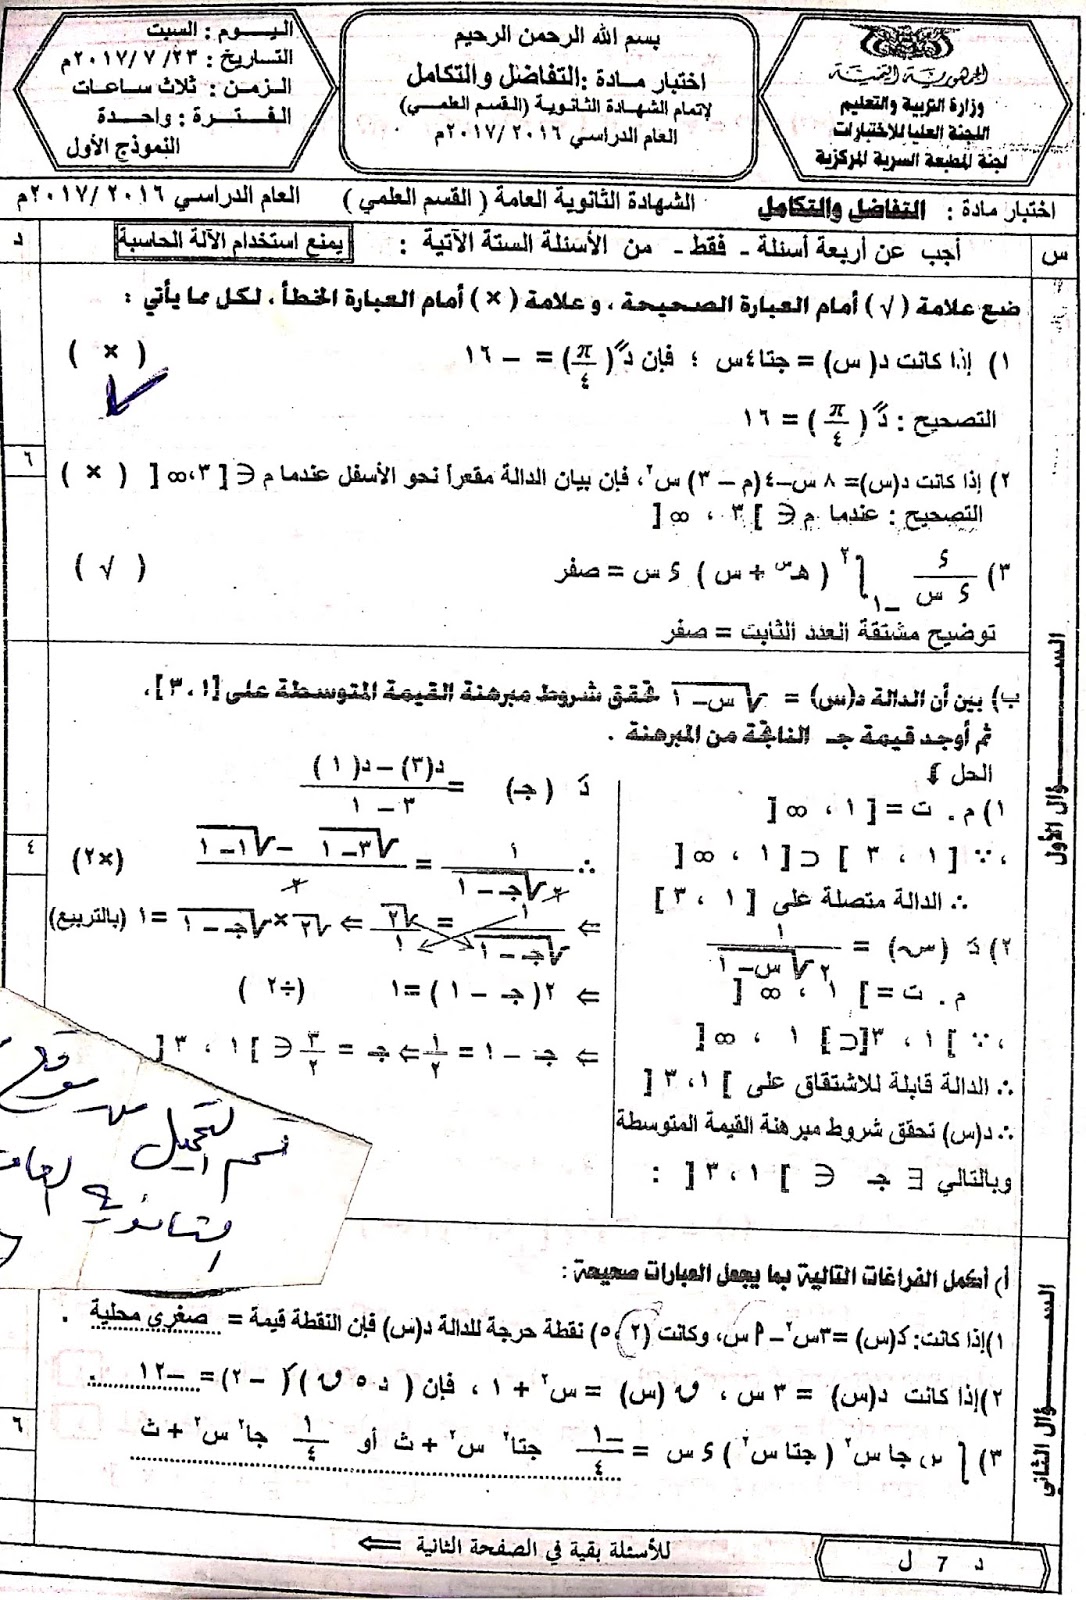 الجمهورية اليمنية
وزارة التربية والتعليم
اللجنة العليا للاختبارات
لجنة المطبعة السرية المركزية
بسم الله الرحمن الرحيم
اختبار مادة : التفاضل والتكامل
لإتمام الشهادة الثانوية (القسم العلمي)
العام الدراسي ٢٠١٦ /٢٠١٧م
اليوم : السبت
التاريخ : ٢٣/ ٧ /٢٠١٧م
الزمن : ثلاث ساعات
الفترة : واحدة
النموذج الأول
اختبار مادة : التفاضل والتكامل الشهادة الثانوية العامة ( القسم العلمي ) العام الدراسي ٢٠١٦ /٢٠١٧م
س أجب عن أربعة أسئلة - فقط - من الأسئلة الستة الآتية : يمنع استخدام الآلة الحاسبة د
السؤال الأول
ضع علامة (√) أمام العبارة الصحيحة ، وعلامة (×) أمام العبارة الخطأ ، لكل مما يأتي :
١) إذا كانت د( س) = جتا٤س ؛ فإن د ً(π/٤) = – ١٦ ( × )
التصحيح : د ً(π/٤) = ١٦
٦
٢) إذا كانت د(س)= ٨ س–٤(م – ٣) س٢، فإن بيان الدالة مقعراً نحو الأسفل عندما م ∈ [ ٣،∞ [ ( × )
التصحيح : عندما م ∈ ] ٣ ، ∞ [
٣) ء/ء س ∫−١٢ ( هـس + س ) ء س = صفر ( √ )
توضيح مشتقة العدد الثابت = صفر
ب) بين أن الدالة د(س) = √س–١ تحقق شروط مبرهنة القيمة المتوسطة على [١ ، ٣]،
ثم أوجد قيمة جـ الناتجة من المبرهنة .
الحل ⇓
١) م . ت = [ ١ ، ∞ [
، ∵ [ ١ ، ٣ ] ⊂ [ ١ ، ∞ [
∴ الدالة متصلة على [ ١ ، ٣ ]
٢) دَ (س) = ١/٢√س–١
م . ت = ] ١ ، ∞ [
، ∵ ] ١ ، ٣ [⊂ ] ١ ، ∞ [
∴ الدالة قابلة للاشتقاق على ] ١، ٣ [
∴ د(س) تحقق شروط مبرهنة القيمة المتوسطة
وبالتالي ∃ جـ ∈ ] ١ ، ٣ [ :
دَ (جـ) = د(٣) – د(١)/٣ – ١
∴ ١/٢√جـ–١ = √٣–١ – √١–١/٢ (×٢)
٤
⇐ ١/√جـ–١ = √٢/١ ⇐ √٢ × √جـ–١ =١ (بالتربيع)
⇐ ٢( جـ – ١ ) =١ (÷٢ )
⇐ جـ – ١ = ١/٢ ⇐ جـ = ٣/٢ ∈ ] ١ ، ٣ [
تم التحميل من موقع
الثانوية العامة
السؤال الثاني
أ) أكمل الفراغات التالية بما يجعل العبارات صحيحة :
١)إذا كانت: دَ(س) =٣س٢– ٩ س، وكانت (٢ ،٥) نقطة حرجة للدالة د(س) فإن النقطة قيمة = صغرى محلية .
٢)إذا كانت د(س) = ٣ س ، ق (س) = س٢ + ١ ، فإن ( د ٥ ق )َ( – ٢) = –١٢
٦
٣) ∫ س جا س٢ ( جتا س٢ ) ء س = –١/٤ جتا٢ س٢ + ث أو ١/٤ جا٢ س٢ + ث
للأسئلة بقية في الصفحة الثانية ⇐
د 7 ل